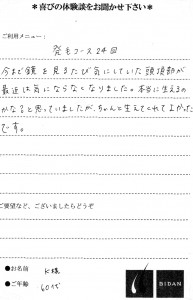 *喜びの体験談をお聞かせ下さい*
ご利用メニュー:
発毛コース24回
今まで鏡を見るたび気にしていた頭頂部が
最近は気にならなくなりました。本当に生えるの
かな?と思っていましたが、ちゃんと生えてくれてよかった
です。
ご要望など、ございましたらどうぞ
●お名前 K様
●ご年齢 60代
BIDAN